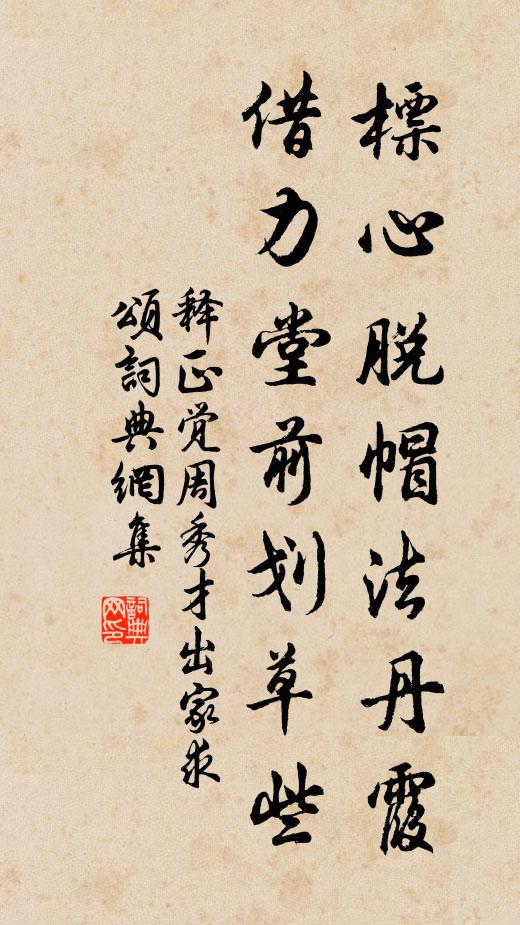 標心脱帽法丹霞
借力堂前划草些
释正觉周秀才出家求
頌詞典網集
詞典网印